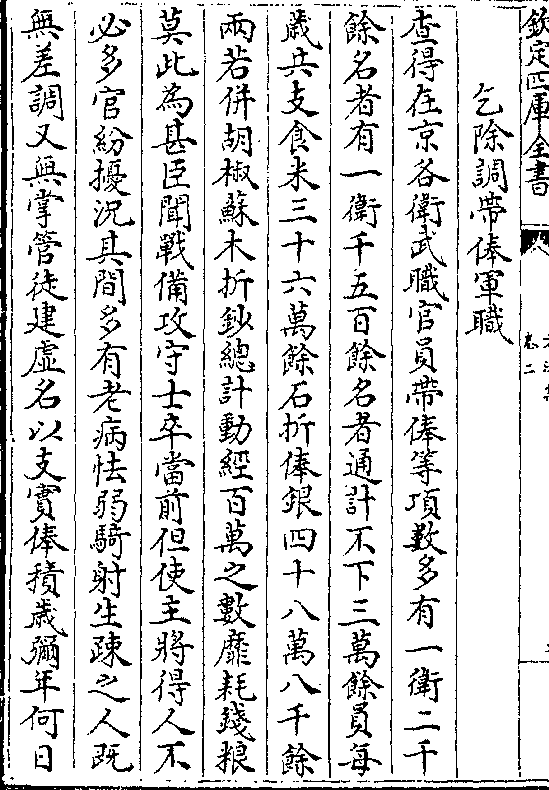 欽定四庫全書
卷二
乞除調帶俸軍職
查得在京各衛武職官員帶俸等項數多有一衛二千
餘名者有一衛千五百餘名者通計不下三萬餘員每
歲共支食米三十六萬餘石折俸銀四十八萬八千餘
兩若併胡椒蘇木折鈔總計動經百萬之數靡耗錢粮
莫此為甚臣聞戰備攻守士卒當前但使主將得人不
必多官紛擾況其間多有老病怯弱騎射生疎之人既
無差調又無掌管徒建虛名以支實俸積歲彌年何日